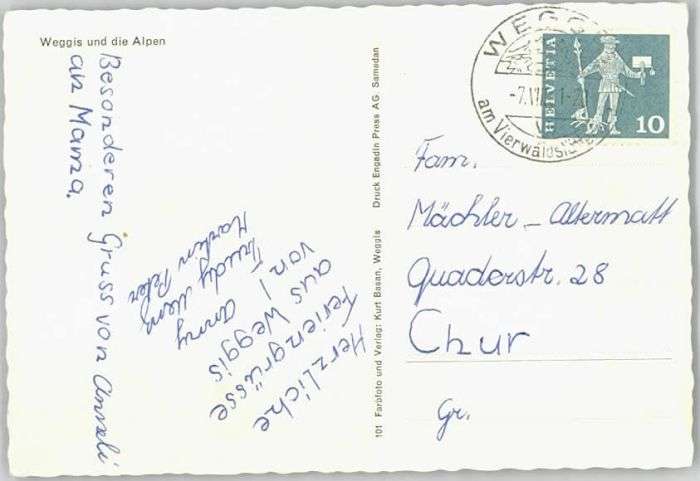 Weggis und die Alpen
Besonderen Gruss von Annali
an Mama.
Herzliche
Feriengrüsse
aus Weggis
von
Trudy
Anny
Peter
101 Farbfoto und Verlag: Kurt Basan, Weggis Druck Engadin Press AG. Samedan
WEGG
-7.
am Vierwaldst
HELVETIA
10
Fam.
Mächler-Altermatt
Quaderstr. 28
Chur
Gr.